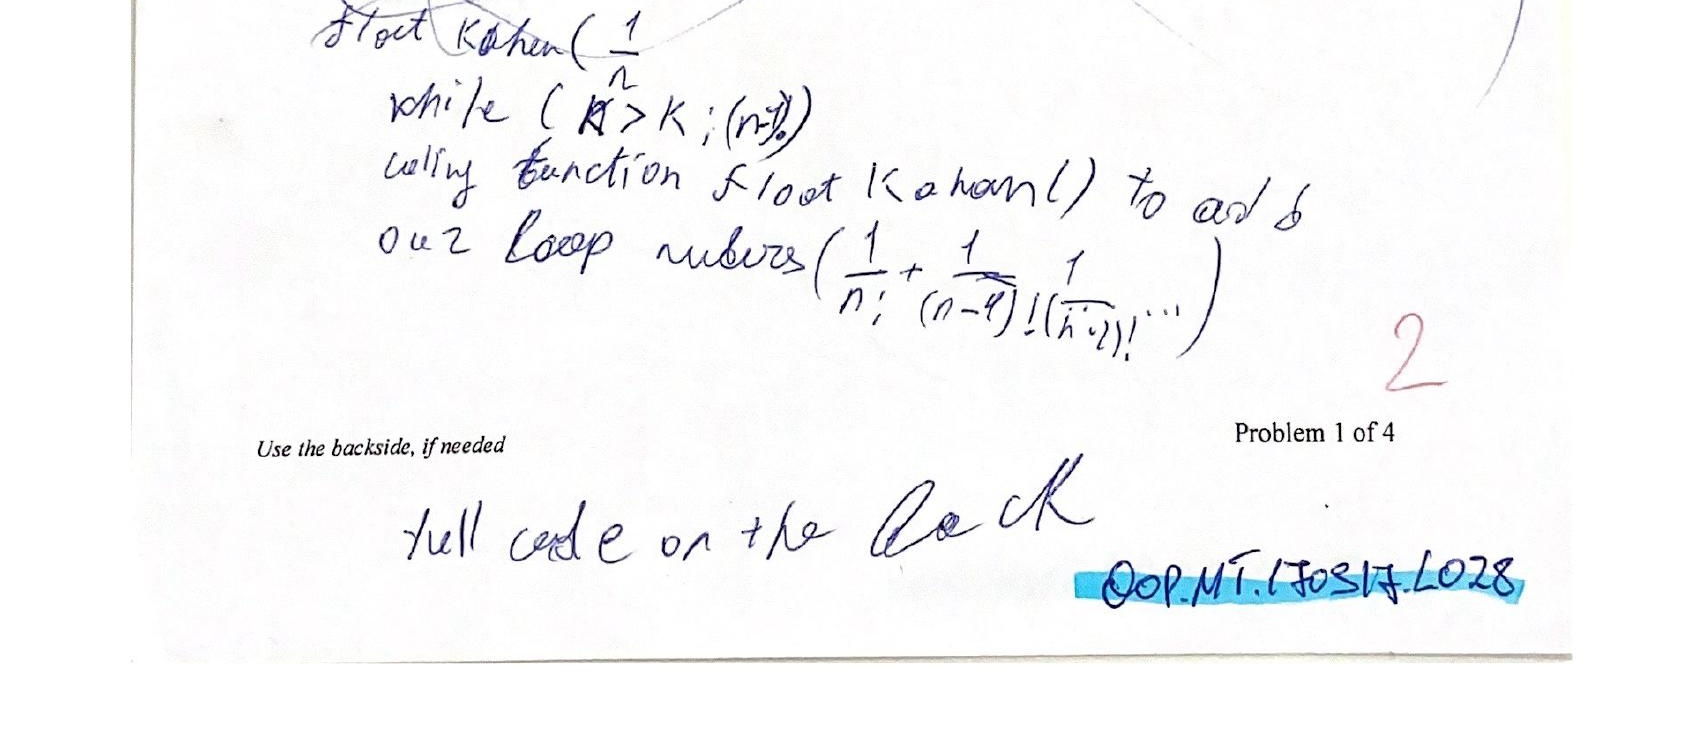 float Kahan( 1/n
while ( n > K ; (n-1)!)
calling function float Kahan() to add
our loop nubers ( 1/n! + 1/(n-1)! 1/(n-2)! ... )
2
Use the backside, if needed
Problem 1 of 4
full code on the back
OOP.MT.170317.L028